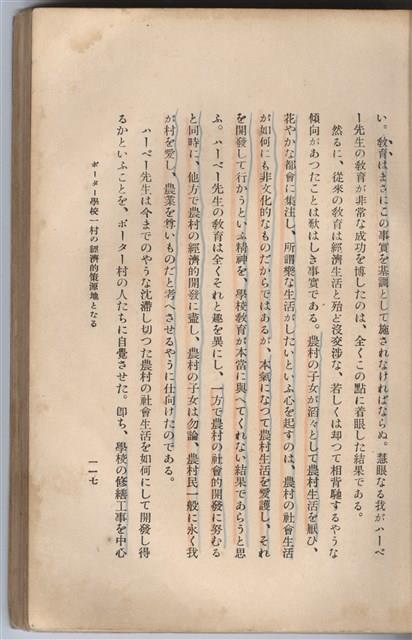 い。教育はまさにこの事實を基調として施されなければならぬ。慧眼なる我がハーベ
ー先生の教育が非常な成功を博したのは、全くこの點に着眼した結果である。
然るに、從來の教育は經濟生活と殆ど沒交渉な、若しくは却つて相背馳するやうな
傾向があつたことは歎はしき事實である。農村の子女が滔々として農村生活を厭ひ、
花やかな都會に集注し、所謂樂な生活がしたいといふ心を起すのは、農村の社會生活
が如何にも非文化的なものだからではあるが、本氣になつて農村生活を愛護し、それ
を開發して行かうといふ精神を、學校教育が本當に與へてくれない結果であらうと思
ふ。ハーベー先生の教育は全くそれと趣を異にし、一方で農村の社會的開發に努むる
と同時に、他方で農村の經濟的開發に盡し、農村の子女は勿論、農村民一般に永く我
が村を愛し、農業を尊いものだと考へさせるやうに仕向けたのである。
ハーベー先生は今までのやうな沈滯し切つた農村の社會生活を如何にして開發し得
るかといふことを、ポーター村の人たちに自覺させた。卽ち、學校の修繕工事を中心
ポーター學校一村の經濟的策源地となる
一一七